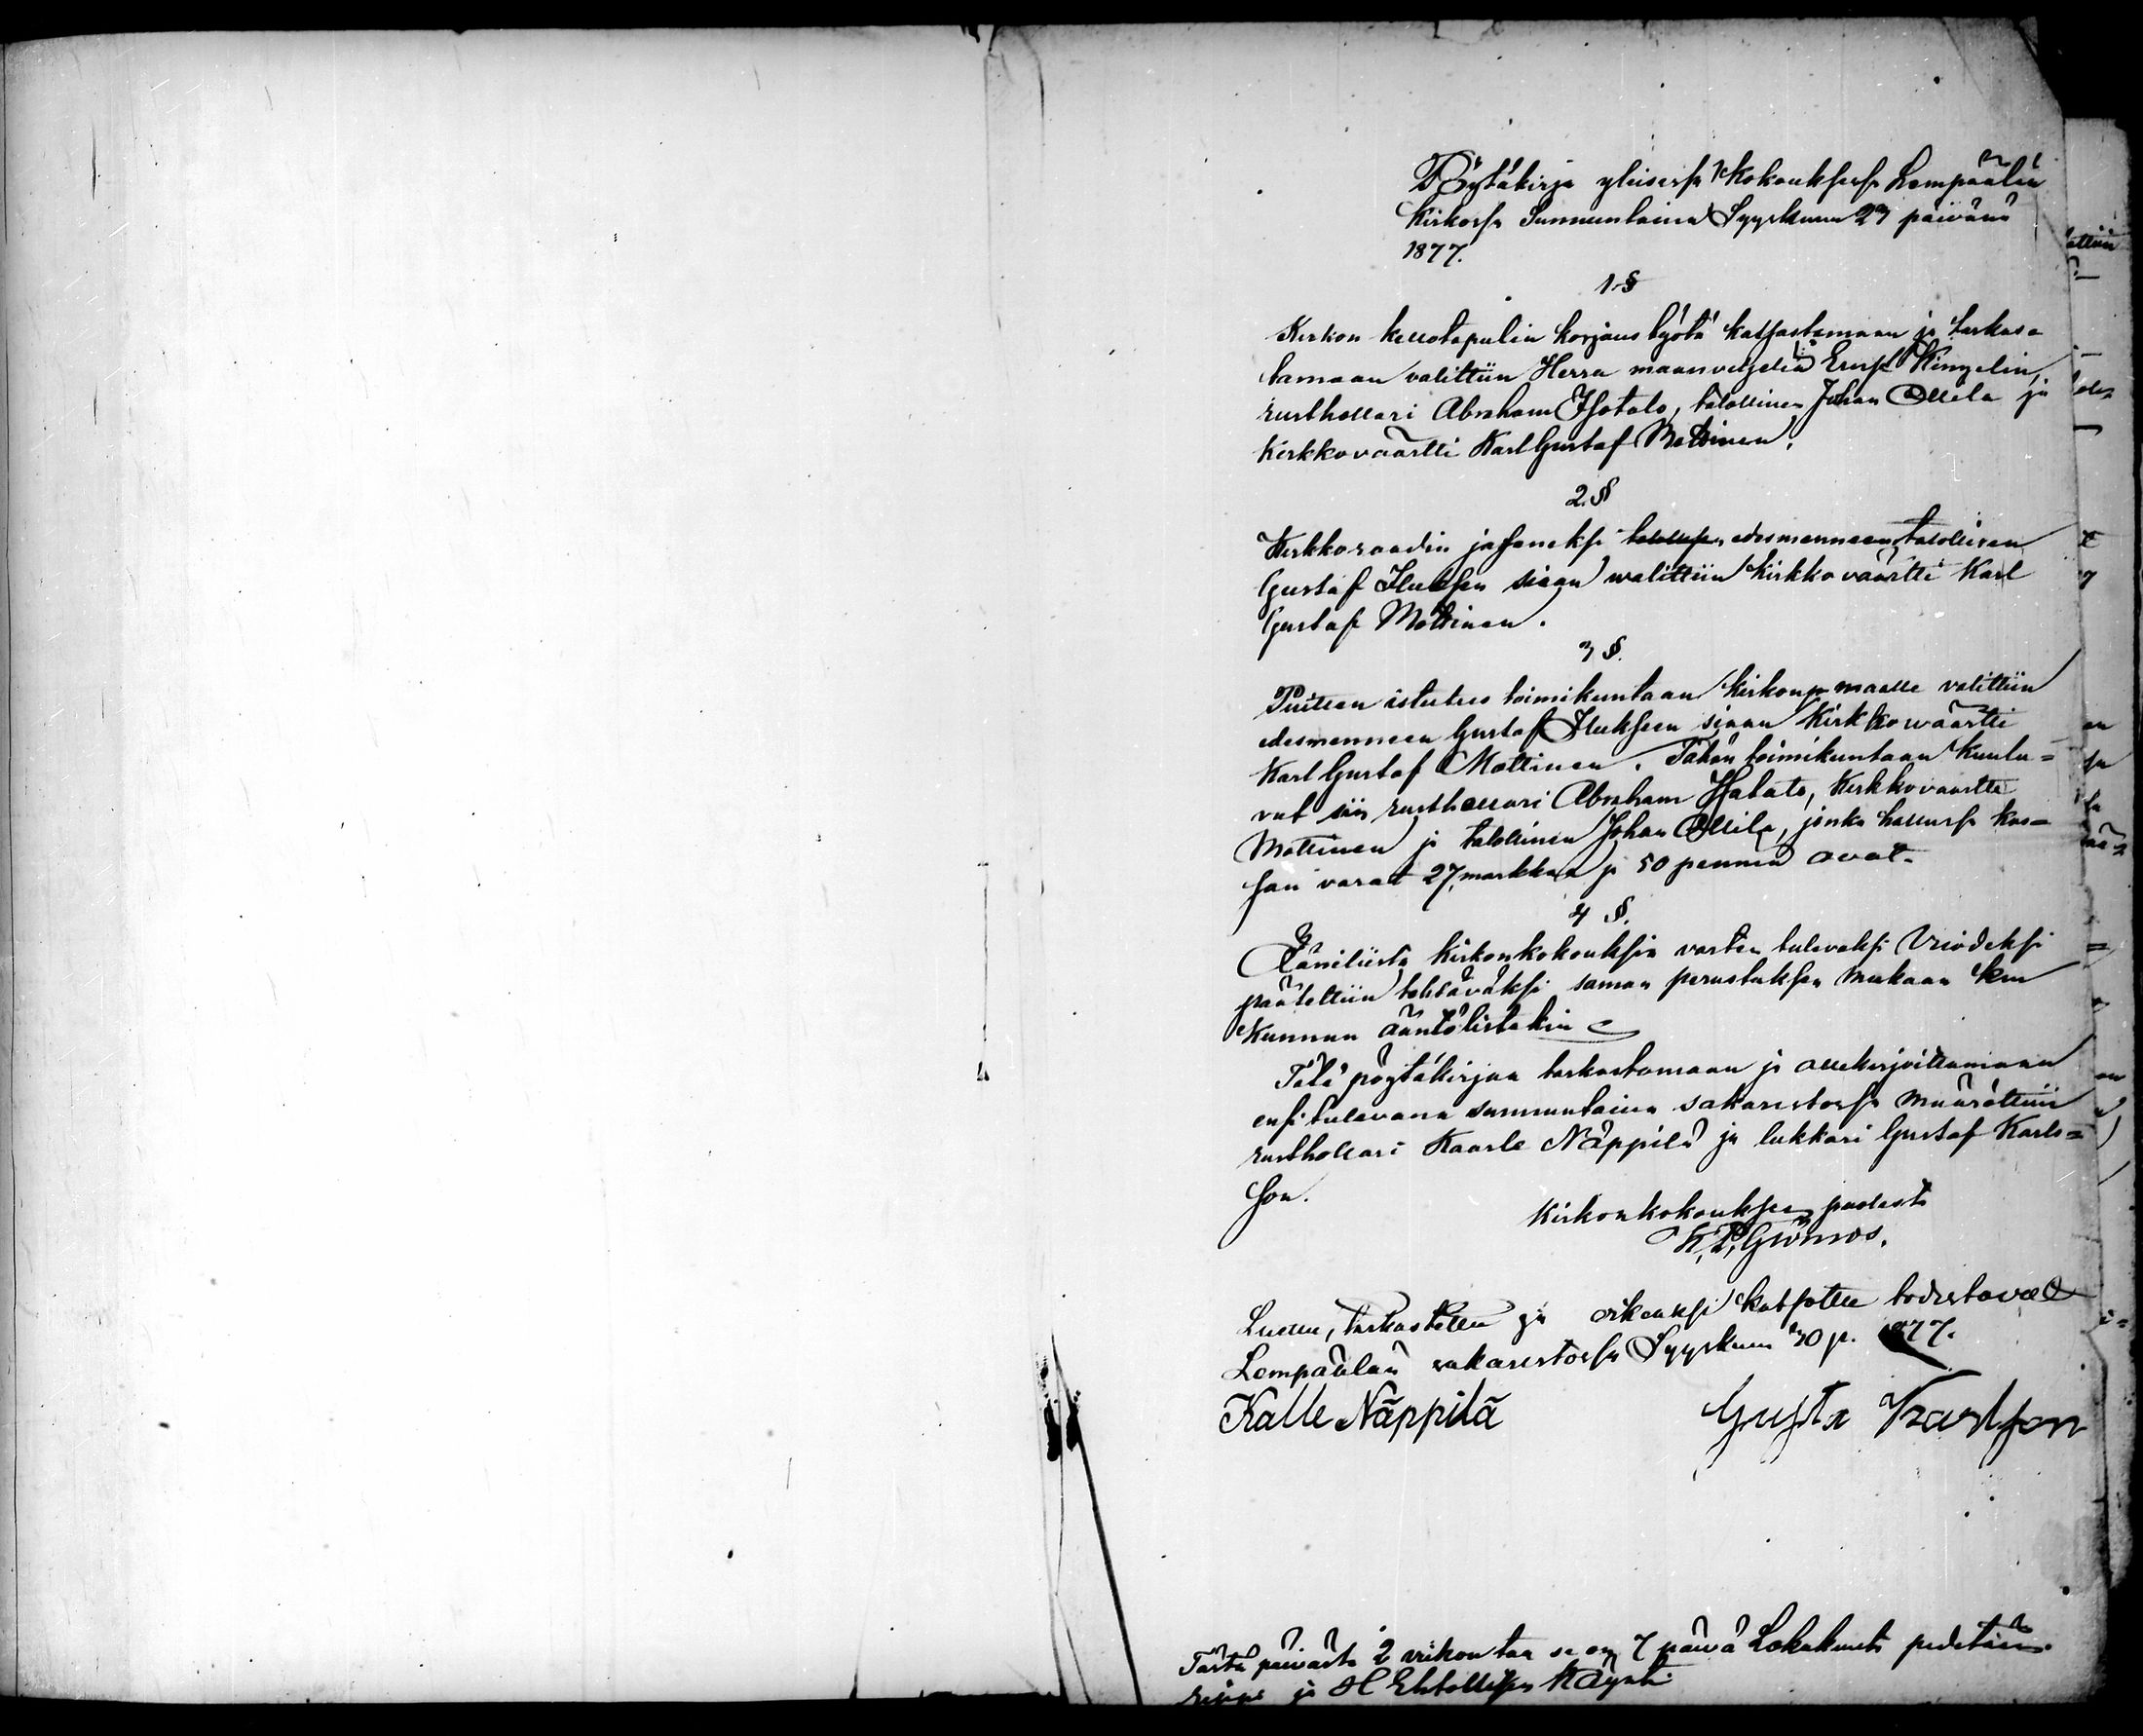 Pöytäkirja yleisessä kokouksessa Lempäälän
Kirkossa Sunnuntaina Syyskuun 23 päivänä
1877.
1 §
Kirkon kellotapulin korjaus työtä katsastamaan ja tarkas=
tamaan valittiin Herra maanviljeliä Ernst Kingelin,
rusthollari Abraham Isotalo, talollinen Johan Ollila ja
Kirkkoväärtti Karl Gustaf Mottinen.
2. §
Kirkkoraadin jäseneksi edesmenneen talollisen
Gustaf siaan walittiin Kirkkoväärtti Karl
Gustaf Mottinen.
3 §.
Puitten istutus toimikuntaan kirkon maalle valittiin
edesmenneen Gustaf siaan Kirkkowäärtti
Karl Gustaf Mottinen. Tähän toimikuntaan kuulu=
vat siis rusthollari Abraham Isotalo, Kirkkovaartti
Mottinen ja talollinen Johan Ollila, jonka hallussa kas=
san varat 27, markkaa ja 50 penniä ovat.
4 §.
Äänilista Kirkonkokouksia varten tulevaksi Vuodeksi
päätettiin tehtäväksi saman perustuksen mukaan kun
Kunnan ääntölistakin
Tätä pöytäkirjaa tarkastamaan ja allekirjoittamaan
ensi tulevana sunnuntaina sakaristossa määrättiin
rusthollari Kaarle Näppilä ja lukkari Gustaf Karls=
son.
Kirkonkokouksen puolesta
K. P. Grönroos.
Luettu, tarkastettu ja oikeaksi katsottu todistavat
Lempäälän sakaristossa Syyskuun 30 p. 1877.
Kalle Näppilä Gusta Karlsson
Tästä päivästä 2 viikon taa se on 7 päivä Lokakuuta pidetään
rippi ja H Ehtollisen Käynti